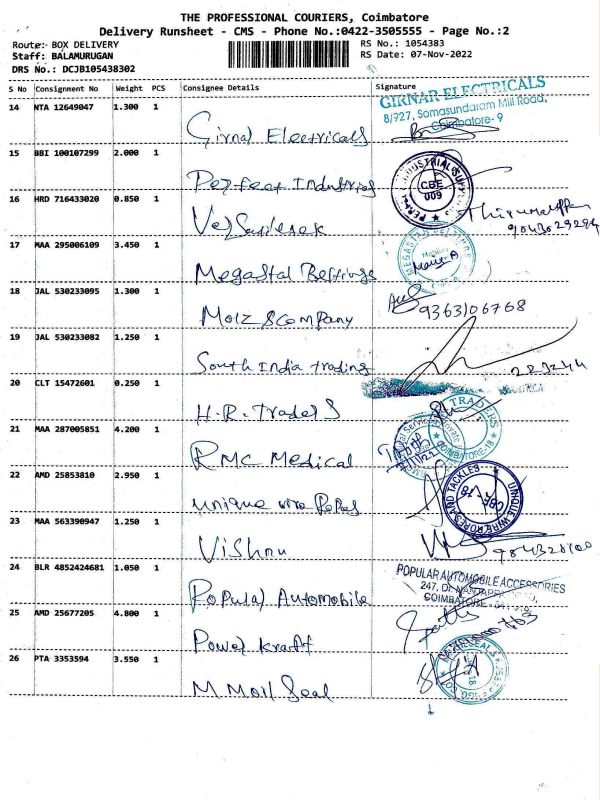 THE PROFESSIONAL COURIERS, Coimbatore
Delivery Runsheet - CMS - Phone No.:0422-3505555 - Page No.:2
Route: BOX DELIVERY
RS No.: 1054383
Staff: BALAMURUGAN
RS Date: 07-Nov-2022
DRS No.: DCJB105438302
S No Consignment No Weight PCS Consignee Details Signature
14 NTA 12649047 1.300 1 Girnal Electricals
GIRNAR ELECTRICALS
8/927, Somasundaram Mill Road,
Coimbatore- 9
15 BBI 100107299 2.000 1 Perfect Industries
CBE
009
16 HRD 716433020 0.850 1
17 MAA 295006109 3.450 1 Megastal Bearings
18 JAL 530233095 1.300 1 Moiz & Company
9363106768
19 JAL 530233082 1.250 1 South India trading
20 CLT 15472601 0.250 1 H.R. Traders
TRADERS
COIMBATORE-18
21 MAA 287005851 4.200 1 RMC Medical
22 AMD 25853810 2.950 1 unique wire Ropes
UNIQUE WIRE ROPES AND TACKLES
CBE-18
23 MAA 563390947 1.250 1 Vishnu
24 BLR 4852424681 1.050 1 Popular Automobile
POPULAR AUTOMOBILE ACCESSORIES
247, Dr. NANJAPPA ROAD,
COIMBATORE
25 AMD 25677205 4.800 1 Power kraft
26 PTA 3353594 3.550 1 M Moil Seal